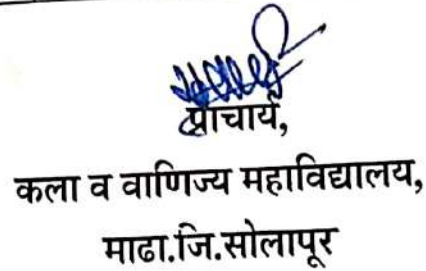 प्राचार्य,
कला व वाणिज्य महाविद्यालय,
माढा.जि.सोलापूर